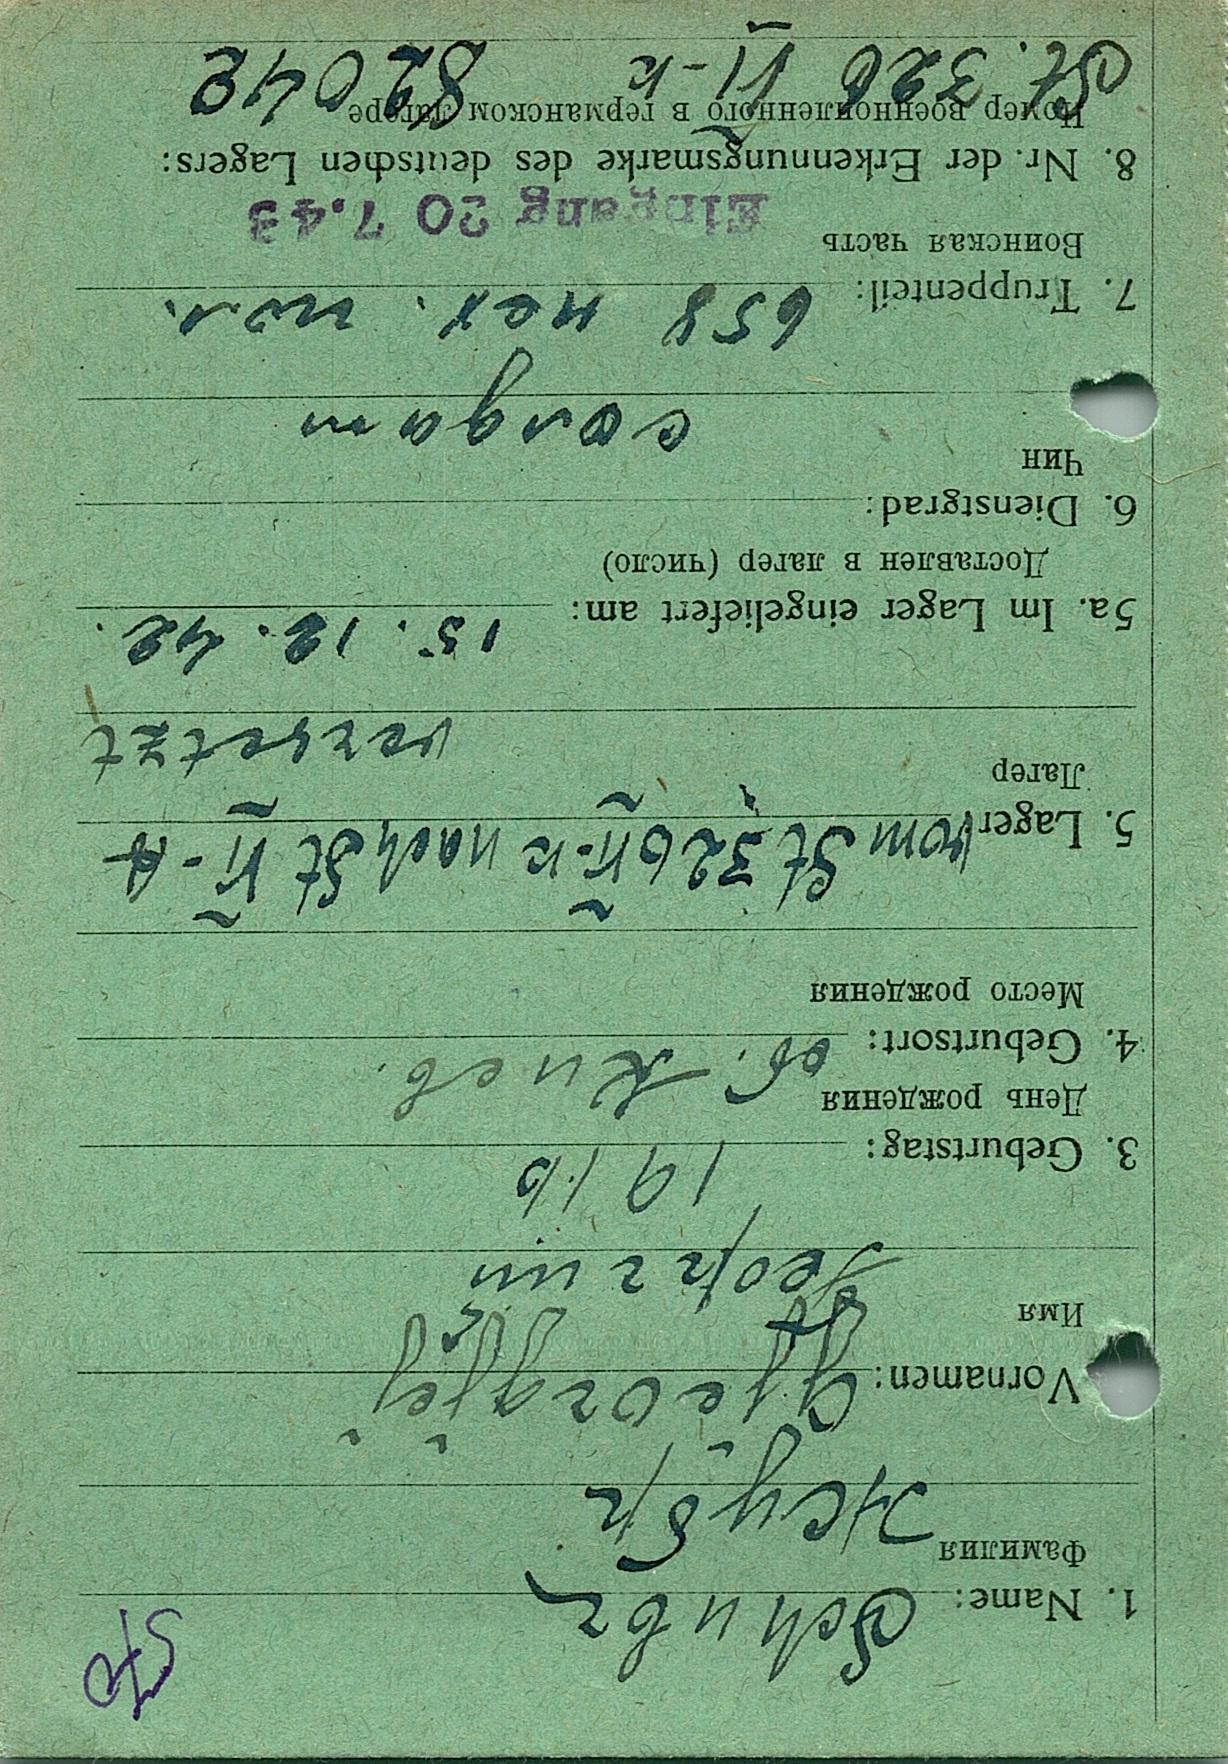 1. Name: Schubr
Фамилия Жубр
Vornamen: Gjeorgjej
Имя
Георгий
3. Geburtstag: 1916
День рождения
4. Geburtsort: об. Киев.
Место рождения
5. Lager vom St 326 VI-K nach St VI-A
Лагер
versetzt
5a. Im Lager eingeliefert am: 15. 12. 42.
Доставлен в лагер (число)
6. Dienstgrad:
Чин
солдат
7. Truppenteil: 658 пех. пол.
Воинская часть
Eingang 20 7.43
8. Nr. der Erkennungsmarke des deutschen Lagers:
Номер военнопленного в германском лагере
St. 326 VI-K 82042